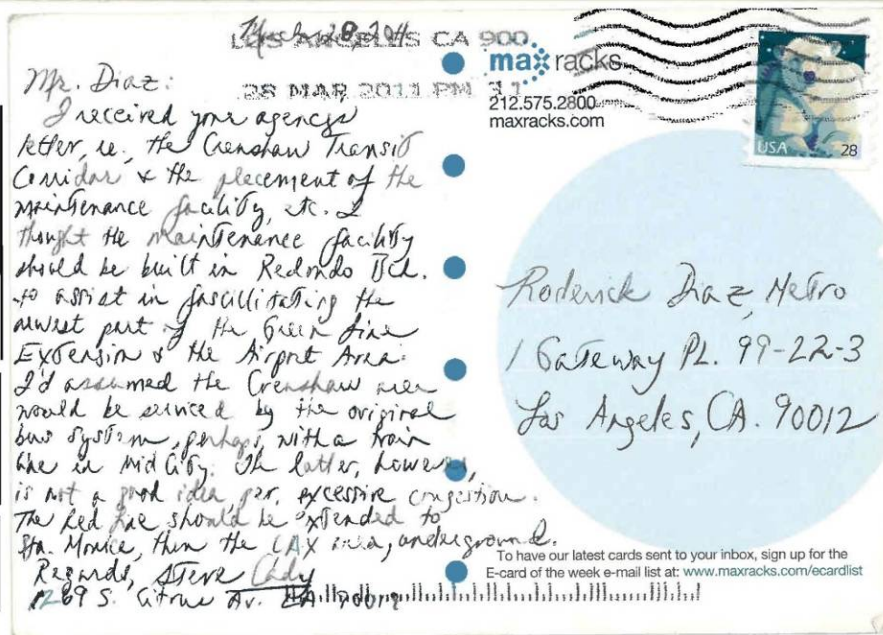 March 28, 2011
LOS ANGELES CA 900
28 MAR 2011 PM 3 1
Mr. Diaz:
I received your agency
letter, re. the Crenshaw Transit
Corridor & the placement of the
maintenance facility, etc. I
thought the maintenance facility
should be built in Redondo Bch.
to assist in fascillitating the
newest part of the Green Line
Extension & the Airport Area.
I'd assumed the Crenshaw area
would be serviced by the original
bus system, perhaps, with a train
line in Mid City. The latter, however,
is not a good idea, per, excessive congestion.
The Red Line should be extended to
Sta. Monica, then the LAX area, underground.
Regards, Steve Cady
1269 S. Citrus Av. LA 90019
maxracks
212.575.2800
maxracks.com
USA 28
Roderick Diaz, Metro
1 Gateway PL. 99-22-3
Los Angeles, CA. 90012
To have our latest cards sent to your inbox, sign up for the
E-card of the week e-mail list at: www.maxracks.com/ecardlist